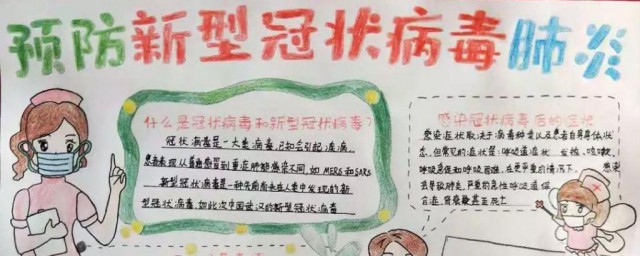 预防新型冠状病毒肺炎
什么是冠状病毒和新型冠状病毒?
冠状病毒是一大类病毒已知会引起疾病,
患者表现从普通感冒到重症肺部感染不同,如MERS和SARS
新型冠状病毒是一种先前尚未在人类中发现的新
型冠状病毒,如此次中国武汉的新型冠状病毒
感染冠状病毒后的症状
感染症状取决于病毒种类以及患者自身身体状
态,但常见的症状是:呼吸道症状 发烧、咳嗽、
呼吸急促和呼吸困难,在更严重的情况下, 感染
会导致肺炎,严重的急性呼吸道综
合症,肾衰竭甚至死亡